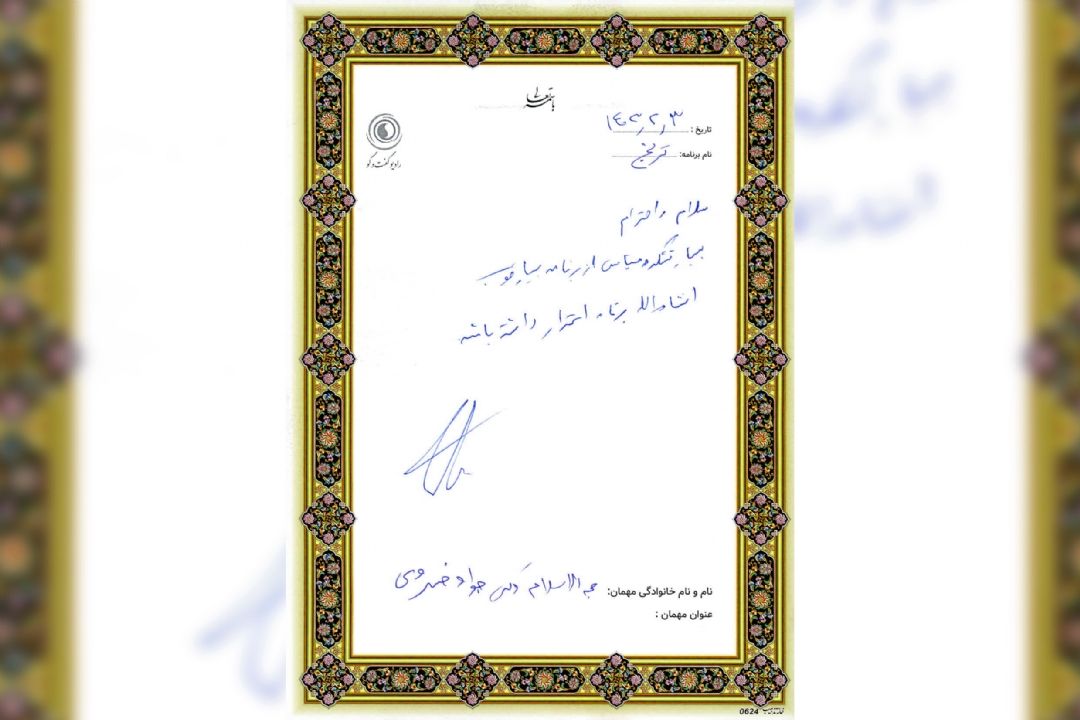 باسمه تعالی
تاریخ : ۱۴۰۳/۲/۳
نام برنامه: ترنج
رادیو گفت و گو
سلام و احترام
بسیار تشکر و سپاس از برنامه بسیار خوب
انشاءالله برنامه استمرار داشته باشد
نام و نام خانوادگی مهمان: حجه الاسلام دکتر جواد خسروی
عنوان مهمان :
0624